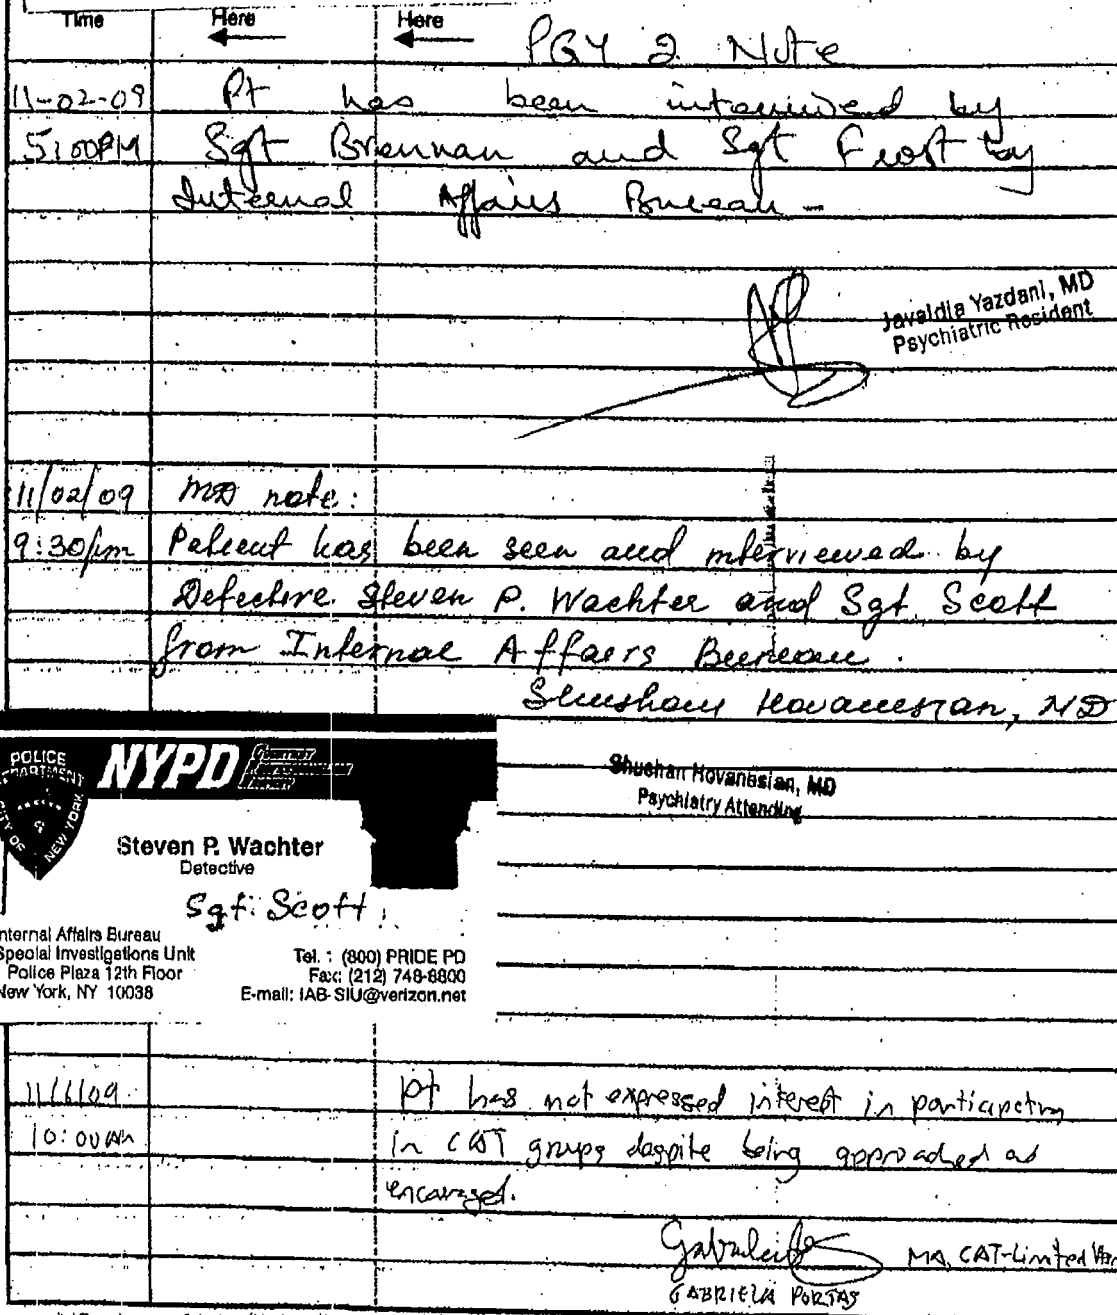 Time Here Here
PGY 2 Note
11-02-09 Pt has been interviewed by
5:00PM Sgt Brennan and Sgt Frost by
Internal Affairs Bureau
Javaidia Yazdani, MD
Psychiatric Resident
11/02/09 MD note:
9:30pm Patient has been seen and interviewed by
Detective Steven P. Wachter and Sgt. Scott
from Internal Affairs Bureau.
Shushan Hovanesian, MD
Shushan Hovanesian, MD
Psychiatry Attending
POLICE DEPARTMENT
CITY OF NEW YORK
NYPD
Steven P. Wachter
Detective
Sgt. Scott
Internal Affairs Bureau
Special Investigations Unit
Police Plaza 12th Floor
New York, NY 10038
Tel. : (800) PRIDE PD
Fax: (212) 748-8800
E-mail: IAB-SIU@verizon.net
11/6/09 Pt has not expressed interest in participating
10:00AM in CAT groups despite being approached and
encouraged.
MA, CAT-Limited
GABRIELA PORTAS